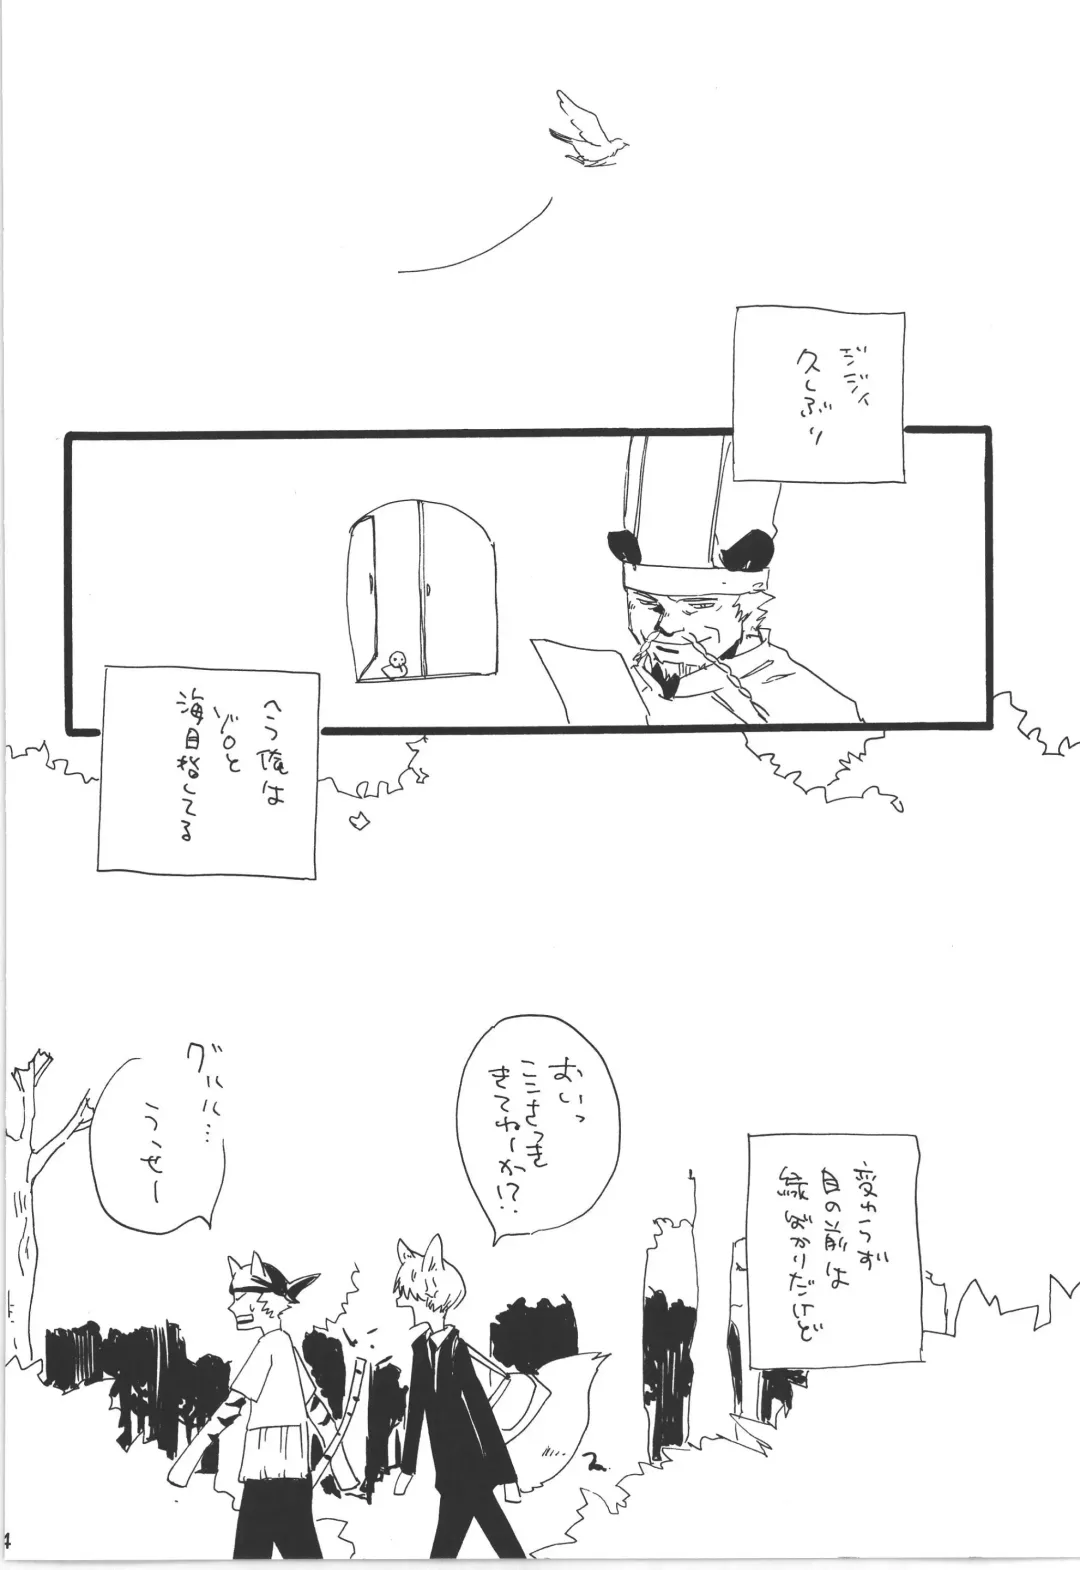 ジジイ
久しぶり
今俺は
ゾロと
海目指してる
おいっ
ここさっき
きてねーか!?
グルル…
うっせー
変わらず
目の前は
緑ばかりだけど
4